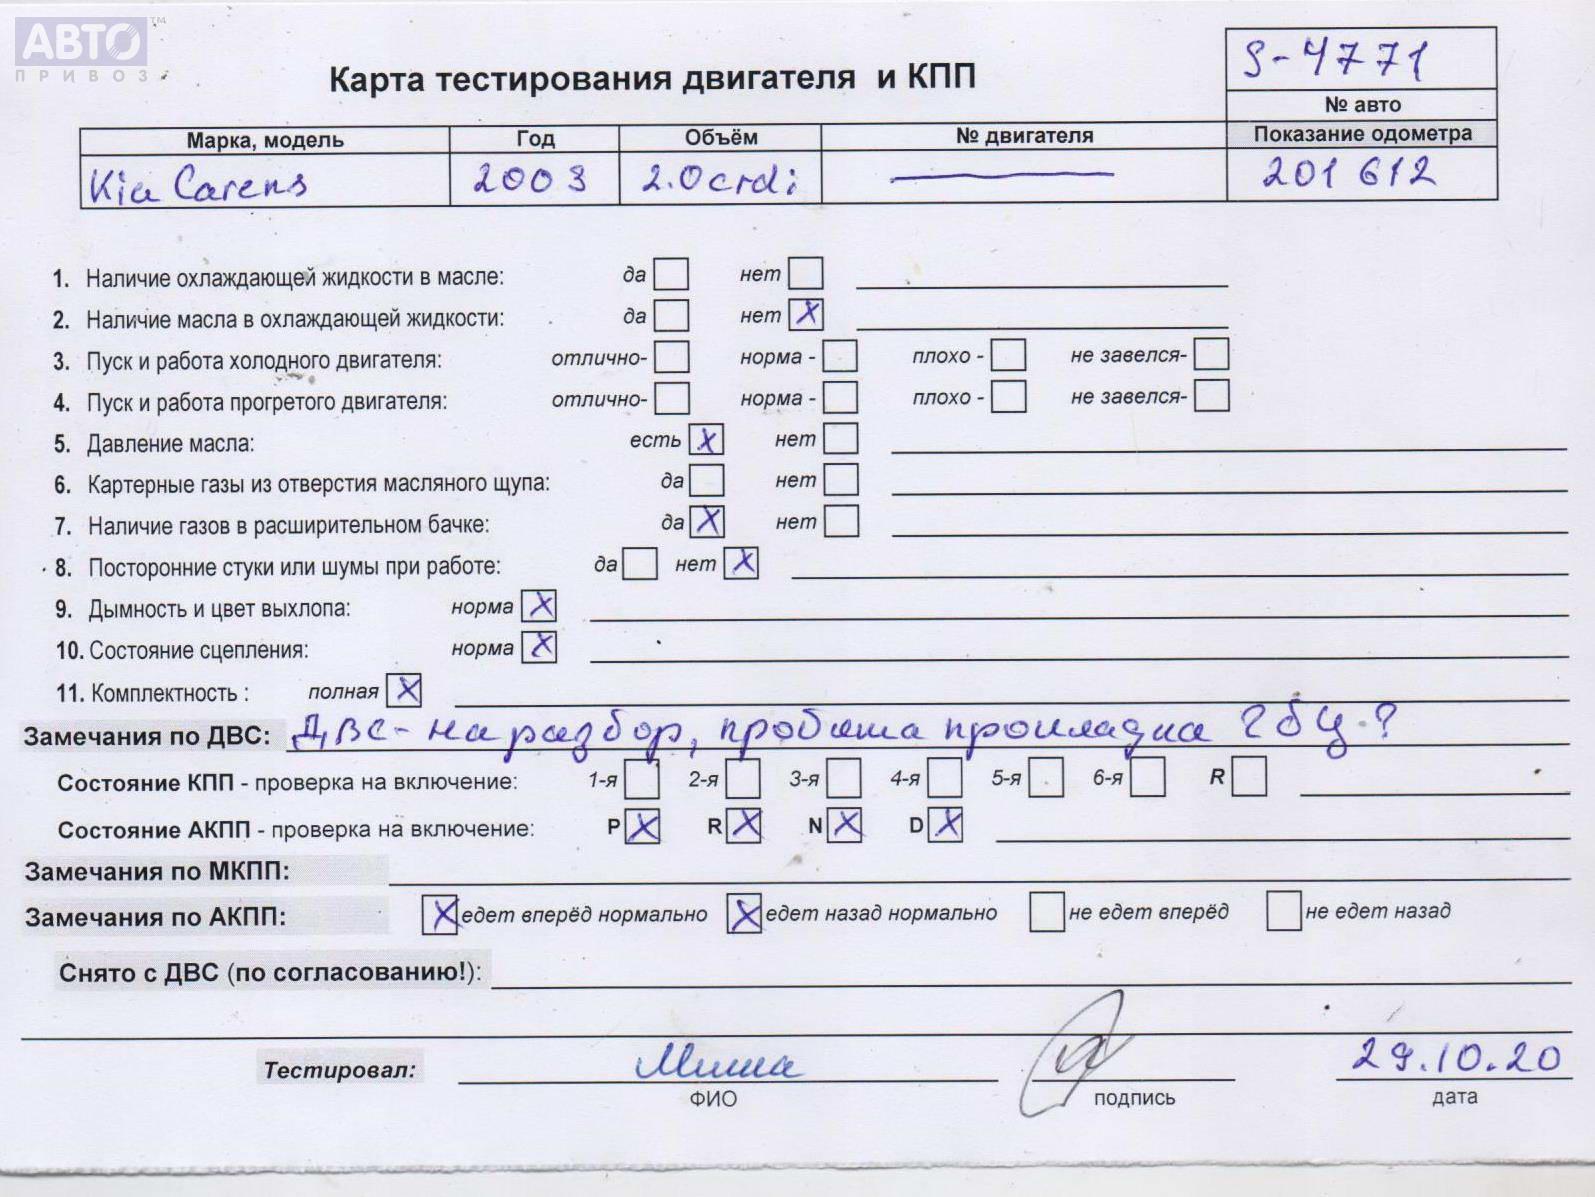 АВТО™
ПРИВОЗ
Карта тестирования двигателя и КПП
S-4771
№ авто
Марка, модель Год Объём № двигателя Показание одометра
Kia Carens 2003 2.0crdi 201 612
1. Наличие охлаждающей жидкости в масле: да нет
2. Наличие масла в охлаждающей жидкости: да нет X
3. Пуск и работа холодного двигателя: отлично- норма - плохо - не завелся-
4. Пуск и работа прогретого двигателя: отлично- норма - плохо - не завелся-
5. Давление масла: есть X нет
6. Картерные газы из отверстия масляного щупа: да нет
7. Наличие газов в расширительном бачке: да X нет
8. Посторонние стуки или шумы при работе: да нет X
9. Дымность и цвет выхлопа: норма X
10. Состояние сцепления: норма X
11. Комплектность : полная X
Замечания по ДВС: ДВС - на разбор, пробита прокладка ГБЦ.?
Состояние КПП - проверка на включение: 1-я 2-я 3-я 4-я 5-я 6-я R
Состояние АКПП - проверка на включение: P X R X N X D X
Замечания по МКПП:
Замечания по АКПП: X едет вперёд нормально X едет назад нормально не едет вперёд не едет назад
Снято с ДВС (по согласованию!):
Тестировал: Миша 29.10.20
ФИО подпись дата